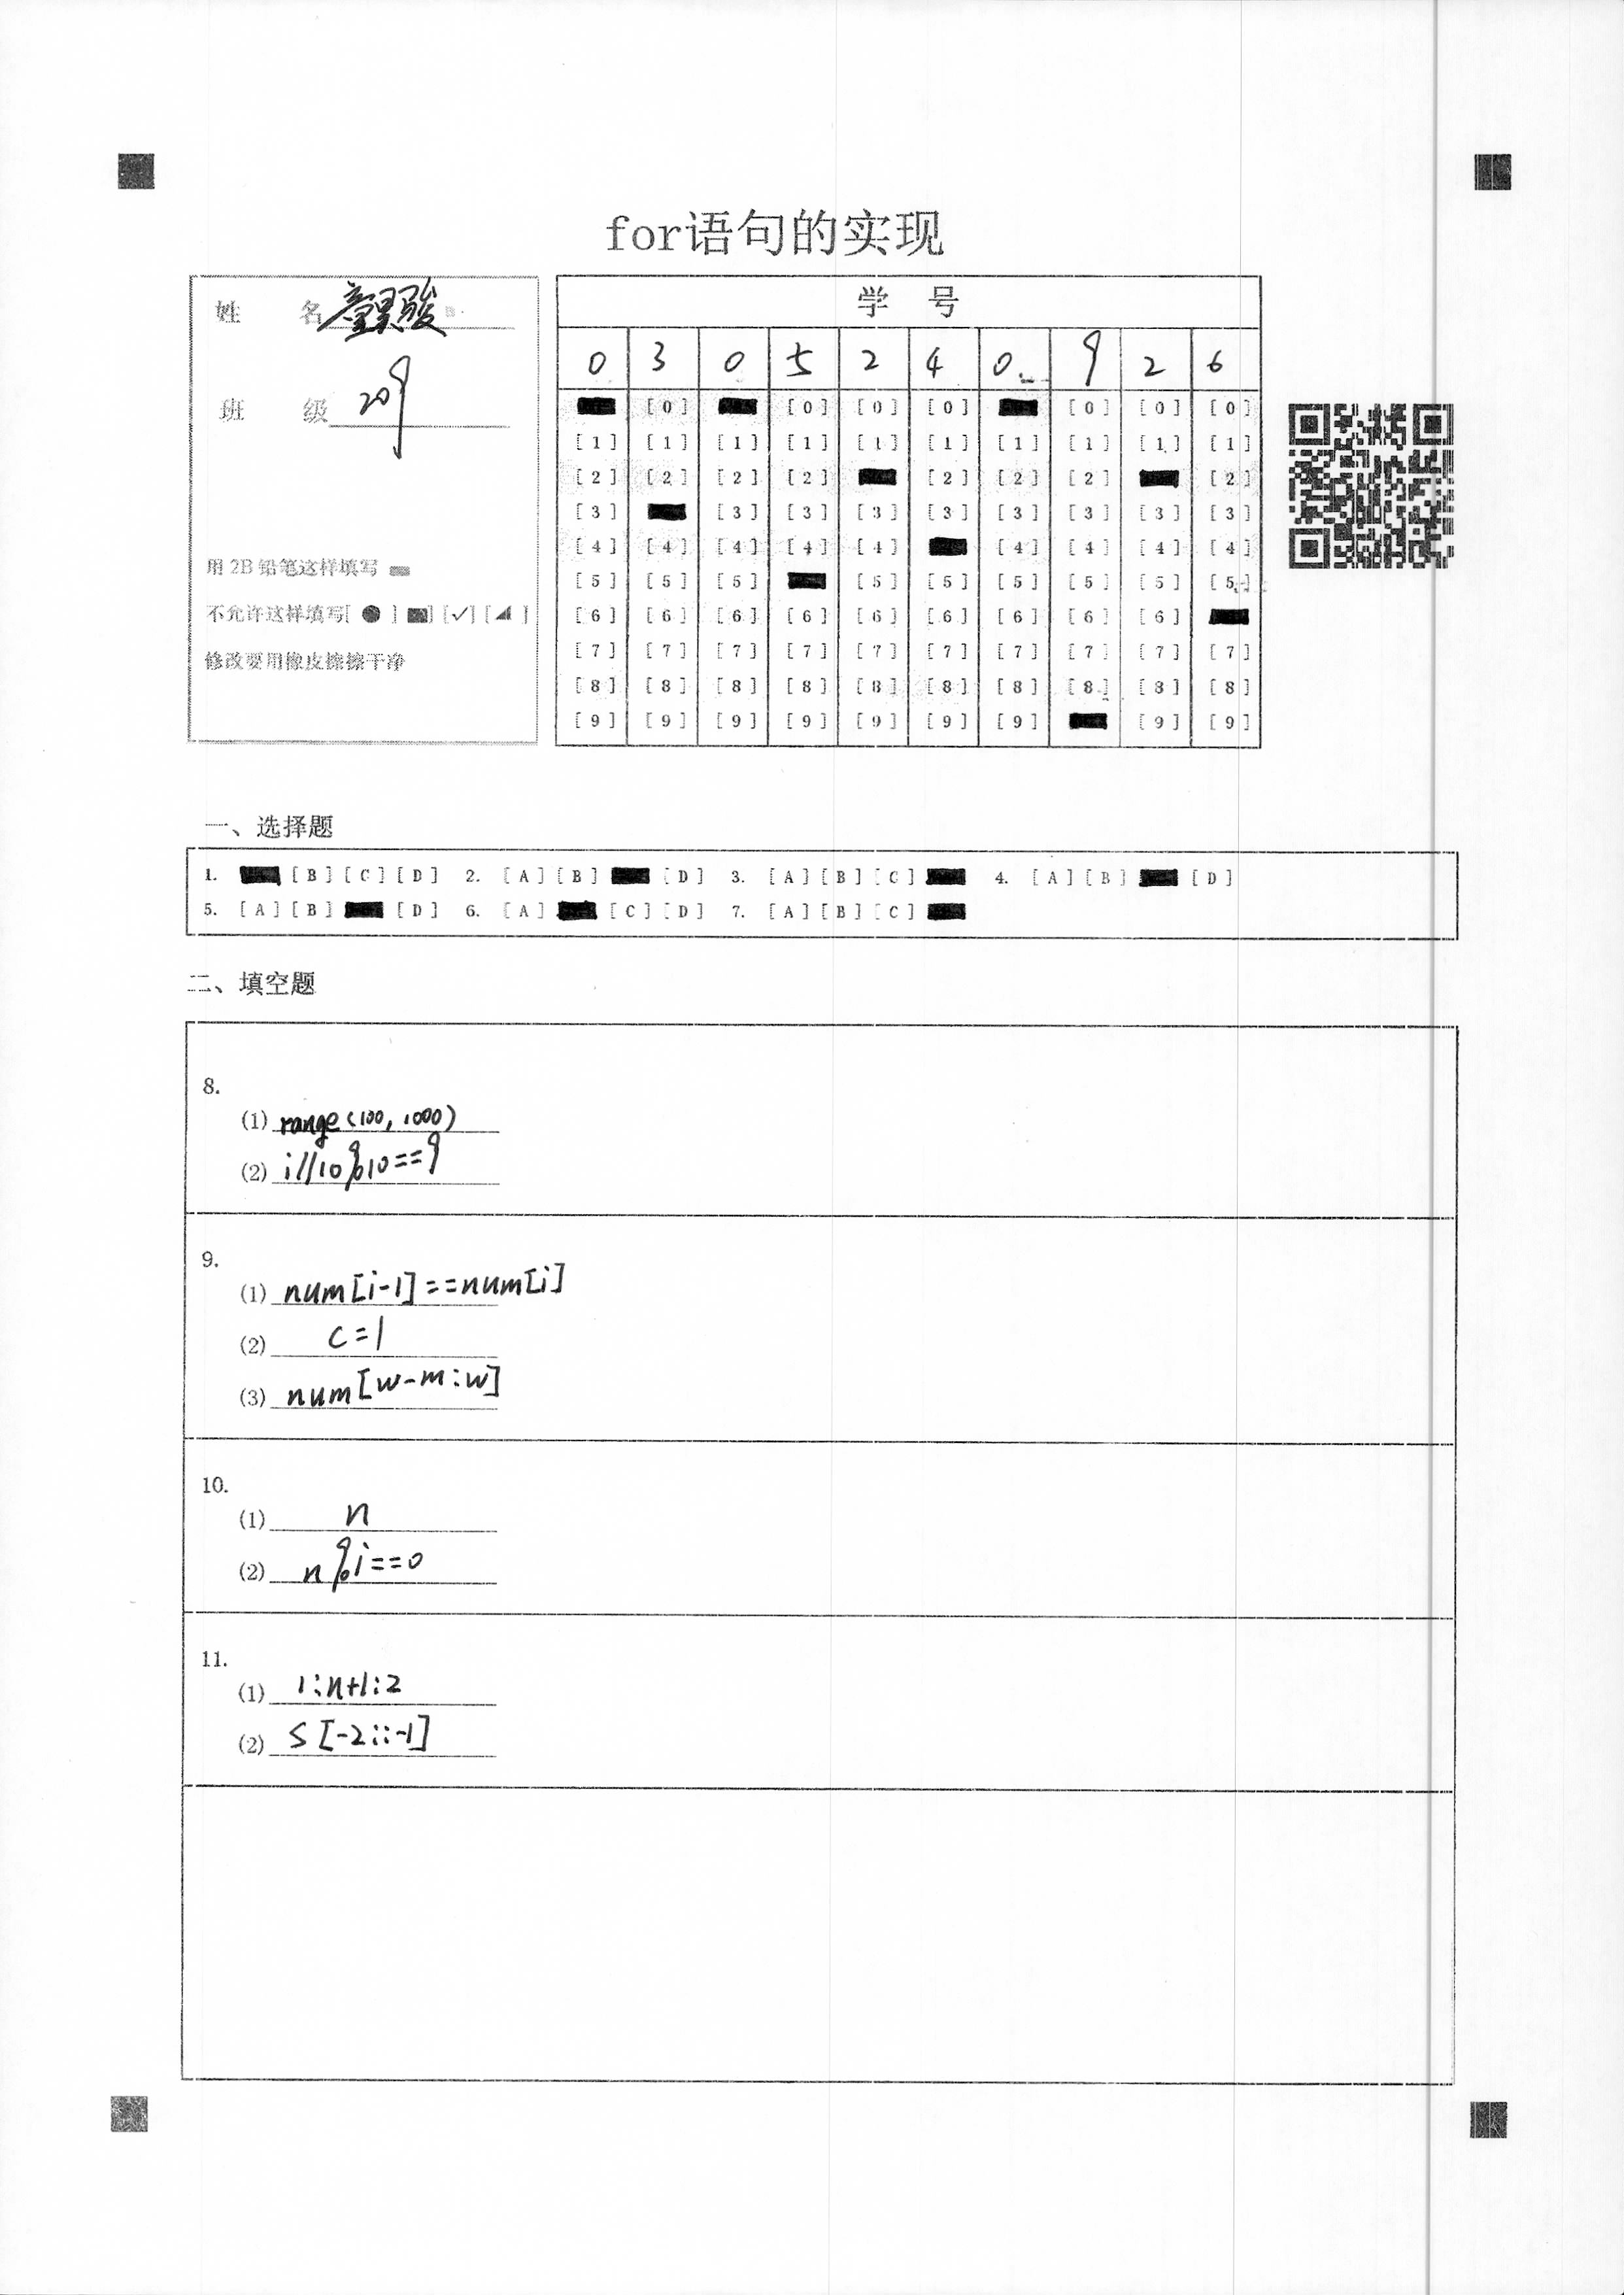 for语句的实现
姓 名 童昊骏
班 级 209
用 2B 铅笔这样填写
不允许这样填写[ ● ] [■] [✓] [◢ ]
修改要用橡皮擦擦干净
学 号
0 3 0 5 2 4 0 9 2 6
[0] [0] [0] [0] [0] [0] [0]
[1] [1] [1] [1] [1] [1] [1] [1] [1] [1]
[2] [2] [2] [2] [2] [2] [2] [2]
[3] [3] [3] [3] [3] [3] [3] [3] [3]
[4] [4] [4] [4] [4] [4] [4] [4] [4]
[5] [5] [5] [5] [5] [5] [5] [5] [5]
[6] [6] [6] [6] [6] [6] [6] [6] [6]
[7] [7] [7] [7] [7] [7] [7] [7] [7] [7]
[8] [8] [8] [8] [8] [8] [8] [8] [8] [8]
[9] [9] [9] [9] [9] [9] [9] [9] [9]
一、选择题
1. [B] [C] [D] 2. [A] [B] [D] 3. [A] [B] [C] 4. [A] [B] [D]
5. [A] [B] [D] 6. [A] [C] [D] 7. [A] [B] [C]
二、填空题
8.
(1) range(100, 1000)
(2) i//10%10==9
9.
(1) num[i-1]==num[i]
(2) c=1
(3) num[w-m:w]
10.
(1) n
(2) n%i==0
11.
(1) 1:n+1:2
(2) s[-2::-1]